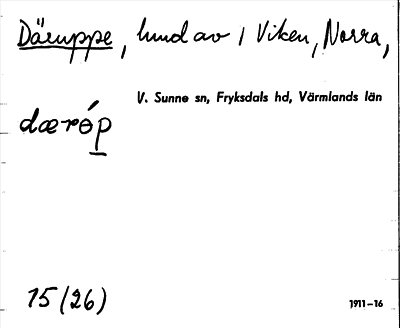 Däruppe, hmd av / Viken, Norra,
V. Sunne sn, Fryksdals hd, Värmlands län
dærö́p
15 (26)
1911–16